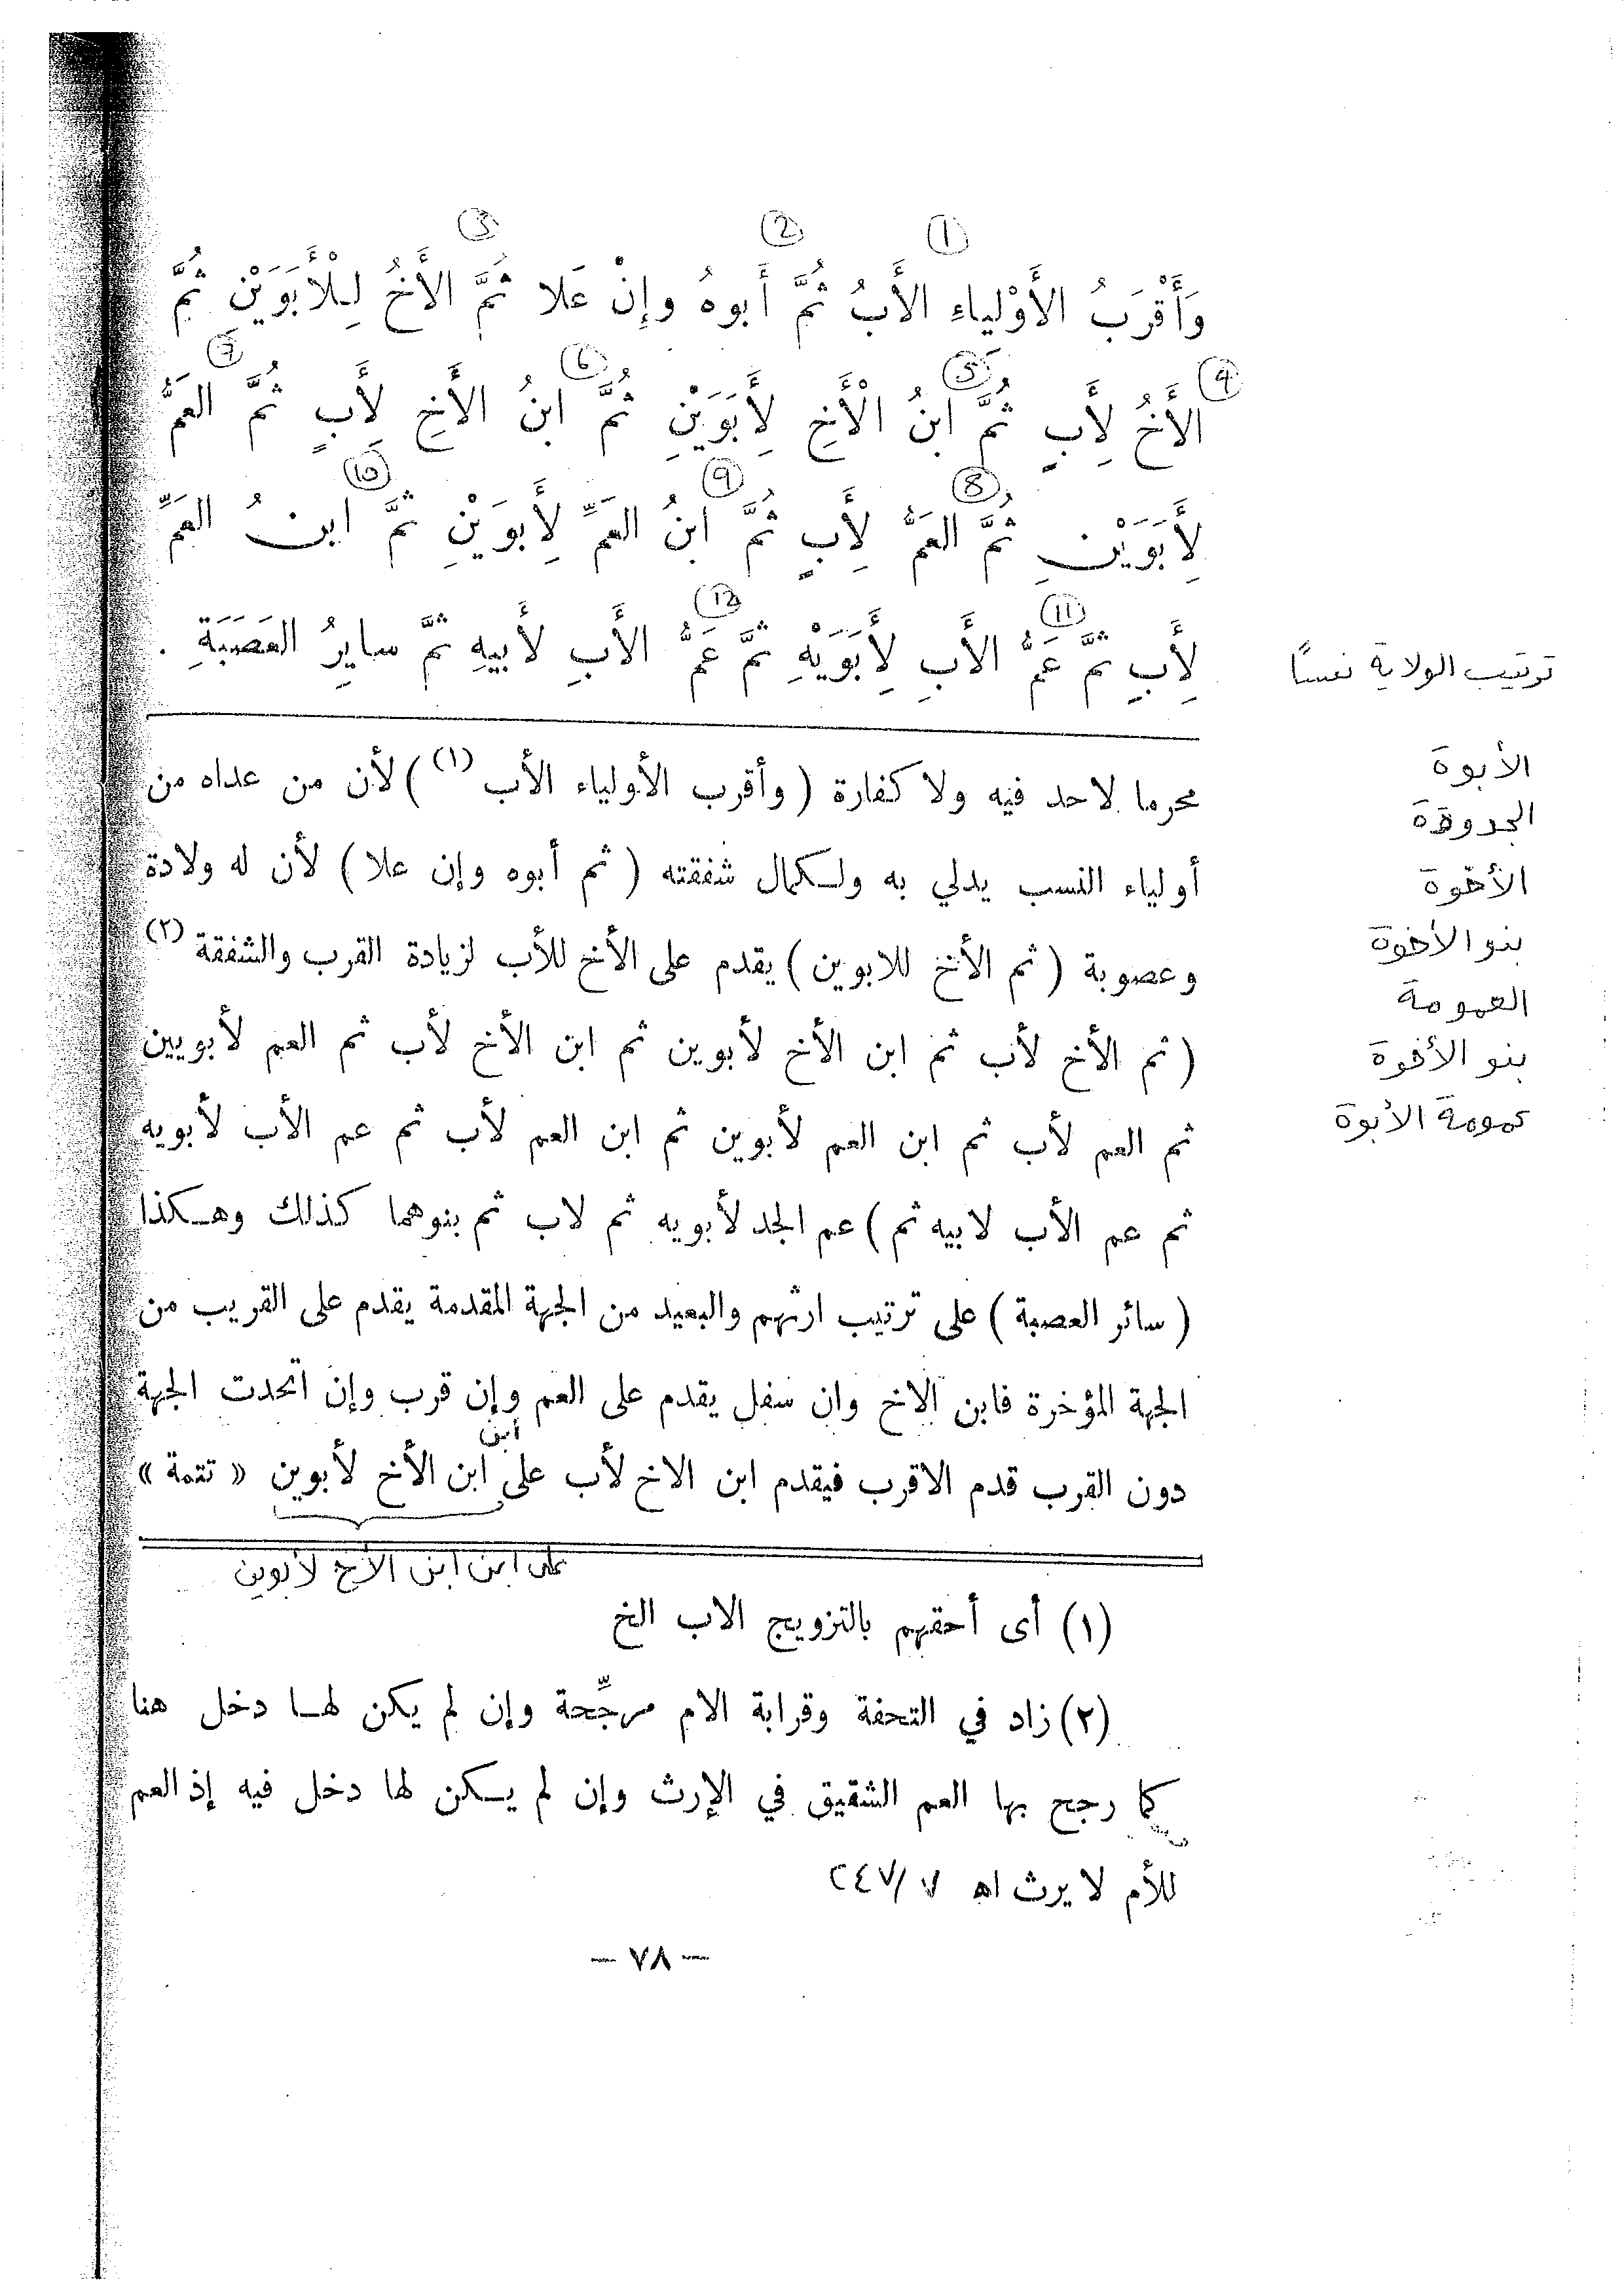 ① ② ③
وَأَقْرَبُ الأَوْلياءِ الأَبُ ثُمَّ أَبوهُ وإِنْ عَلا ثُمَّ الأَخُ لِلْأَبَوَيْنِ ثُمَّ
④ ⑤ ⑥ ⑦
الأَخُ لِأَبٍ ثُمَّ ابنُ الْأَخِ لِأَبَوَيْنِ ثُمَّ ابنُ الأَخِ لِأَبٍ ثُمَّ العَمُّ
⑧ ⑨ ⑩
لِأَبَوَيْنِ ثُمَّ العَمُّ لِأَبٍ ثُمَّ ابنُ العَمِّ لِأَبوَيْنِ ثمَّ ابنُ العَمِّ
⑪ ⑫
لِأَبٍ ثمَّ عَمُّ الأَبِ لِأَبَوَيْهِ ثمَّ عَمُّ الأَبِ لأَبيهِ ثمَّ سايِرُ العَصَبَةِ .
ترتيب الولاية نسبًا
الأبوة
الجدودة
الأخوة
بنو الأخوة
العمومة
بنو الأخوة
عمومة الأبوة
محرما لاحد فيه ولا كفارة ( وأقرب الأولياء الأب (١) ) لأن من عداه من
أولياء النسب يدلي به ولكمال شفقته ( ثم أبوه وإن علا ) لأن له ولادة
وعصوبة ( ثم الأخ للابوين ) يقدم على الأخ للأب لزيادة القرب والشفقة (٢)
( ثم الأخ لأب ثم ابن الأخ لأبوين ثم ابن الأخ لأب ثم العم لأبويين
ثم العم لأب ثم ابن العم لأبوين ثم ابن العم لأب ثم عم الأب لأبويه
ثم عم الأب لابيه ثم ) عم الجد لأبويه ثم لاب ثم بنوهما كذلك وهكذا
( سائر العصبة ) على ترتيب ارثهم والبعيد من الجهة المقدمة يقدم على القريب من
الجهة المؤخرة فابن الاخ وان سفل يقدم على العم وإن قرب وإن اتحدت الجهة
أبن
دون القرب قدم الاقرب فيقدم ابن الاخ لأب على ابن الأخ لأبوين « تتمة »
على ابن ابن الأخ لأبوين
(١) أى أحقهم بالتزويج الاب الخ
(٢) زاد في التحفة وقرابة الام مرجِّحة وإن لم يكن لها دخل هنا
كما رجح بها العم الشقيق في الإرث وإن لم يكن لها دخل فيه إذ العم
للأم لا يرث اه ٧/٢٤٧
— ٧٨ —